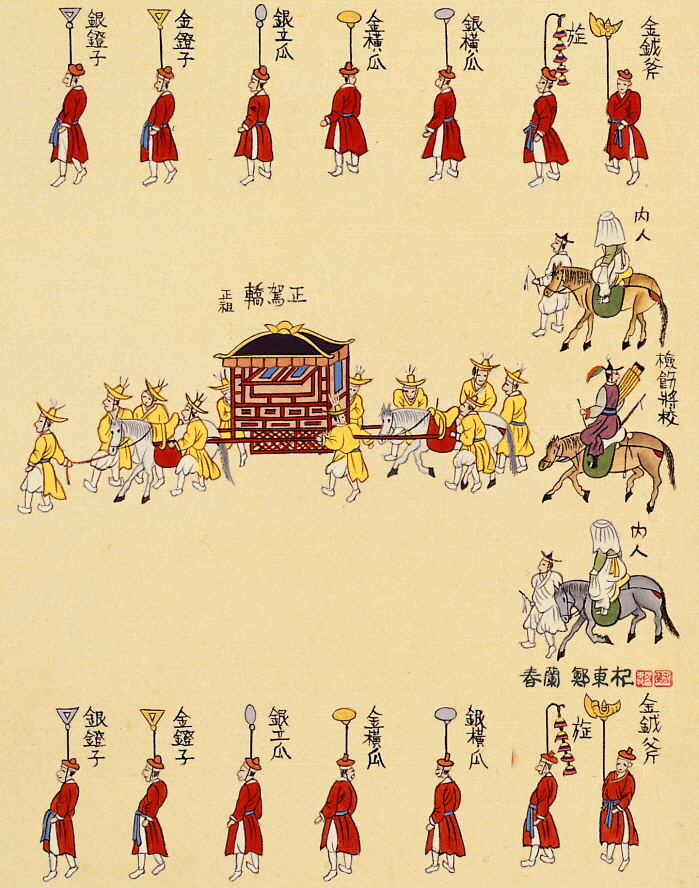 金鉞斧
銀橫瓜
金橫瓜
銀立瓜
金鐙子
銀鐙子
内人
正駕轎
正祖
檢飭將校
内人
春蘭 鄭東杞
金鉞斧
銀橫瓜
金橫瓜
銀立瓜
金鐙子
銀鐙子